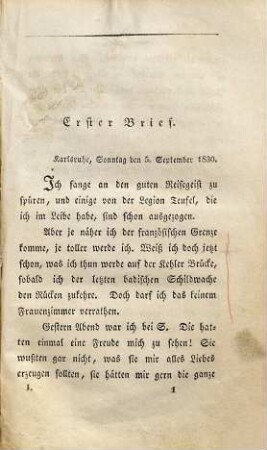 Erster Brief.
Karlsruhe, Sonntag den 5. September 1830.
Ich fange an den guten Reisegeist zu
spüren, und einige von der Legion Teufel, die
ich im Leibe habe, sind schon ausgezogen.
Aber je näher ich der französischen Grenze
komme, je toller werde ich. Weiß ich doch jetzt
schon, was ich thun werde auf der Kehler Brücke,
sobald ich der letzten badischen Schildwache
den Rücken zukehre. Doch darf ich das keinem
Frauenzimmer verrathen.
Gestern Abend war ich bei S. Die hat-
ten einmal eine Freude mich zu sehen! Sie
wußten gar nicht, was sie mir alles Liebes
erzeugen sollten, sie hätten mir gern die ganze
I. 1